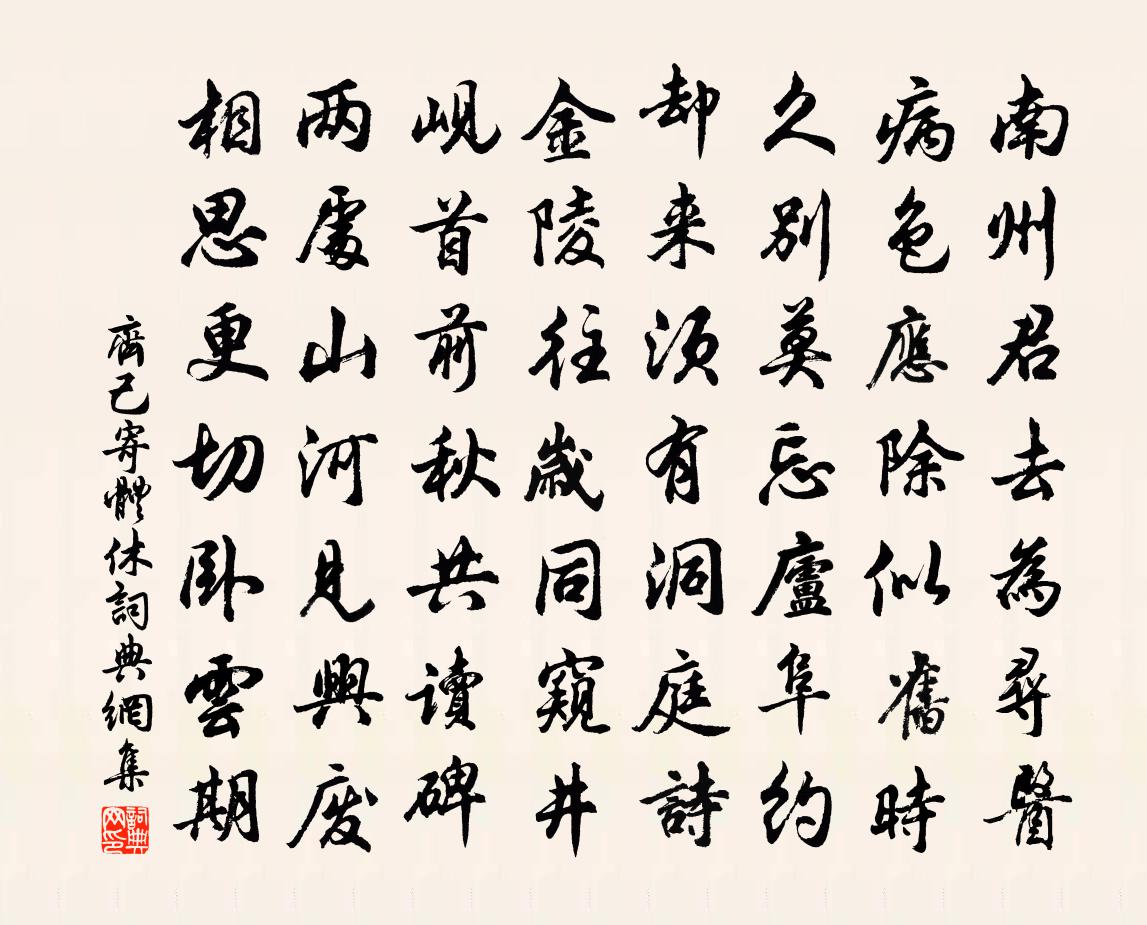 南州君去為尋醫
病色應除似舊時
久別莫忘廬阜約
却来須有洞庭詩
金陵往歲同窺井
峴首前秋共讀碑
两處山河見興废
相思更切卧雲期
齊己寄體休詞典網集
詞典网印